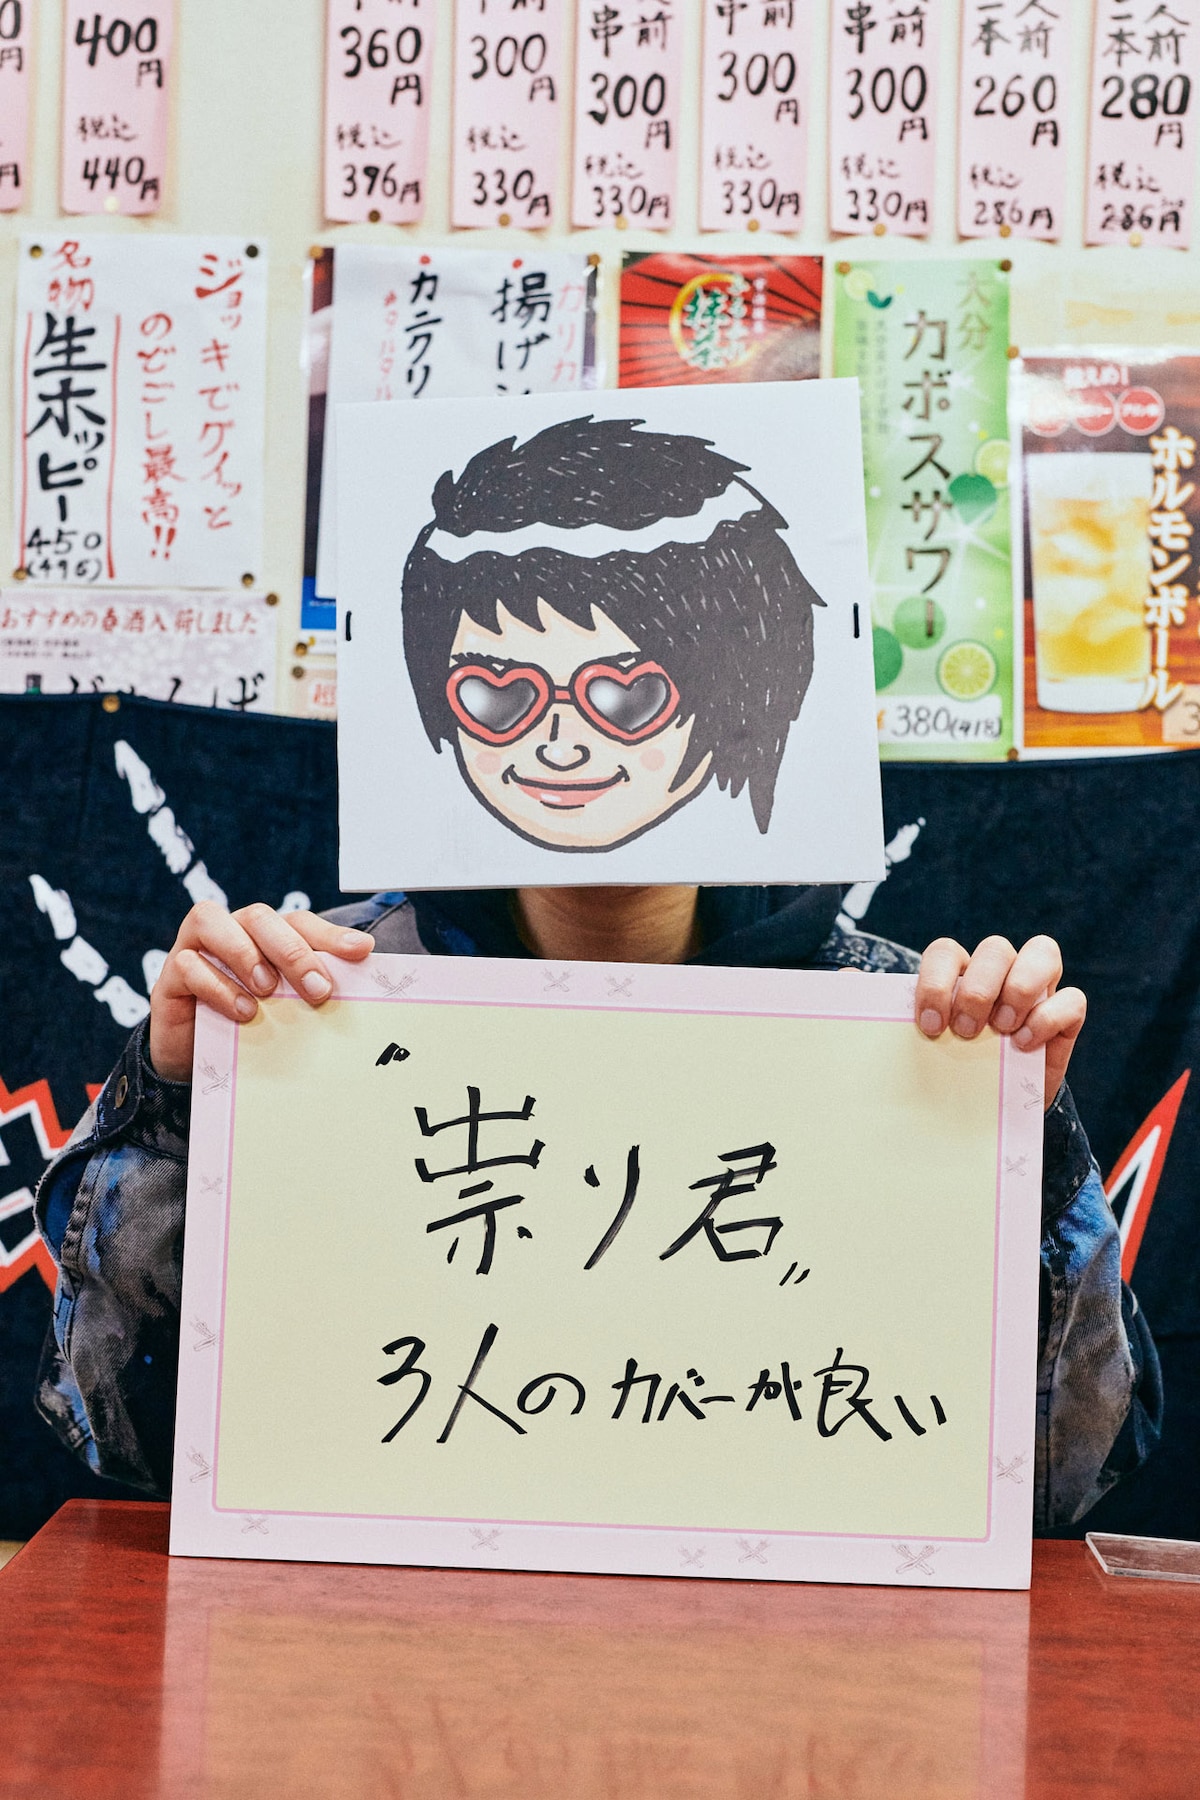 400円
税込
440円
前
360円
税込
396円
300円
税込
330円
串前
300円
税込
330円
串前
300円
税込
330円
串前
300円
税込
330円
人前
二本
260円
税込
286円
人前
二本
280円
税込
286円
ジョッキでグイッと
のどごし最高!!
名物
生ホッピー
450
(495)
揚げ
カニクリ
抹茶
大分
カボスサワー
380(418)
ホルモンボール
おすすめの春酒入荷しました
〝祟り君〟
3人のカバーが良い